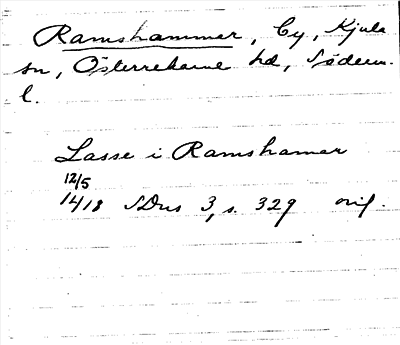 Ramshammar, By, Kjula
sn, Österrekarne hd, Söderm.
l.
Lasse i Ramshamar
12/5
1418 SDns 3, s. 329 orig.